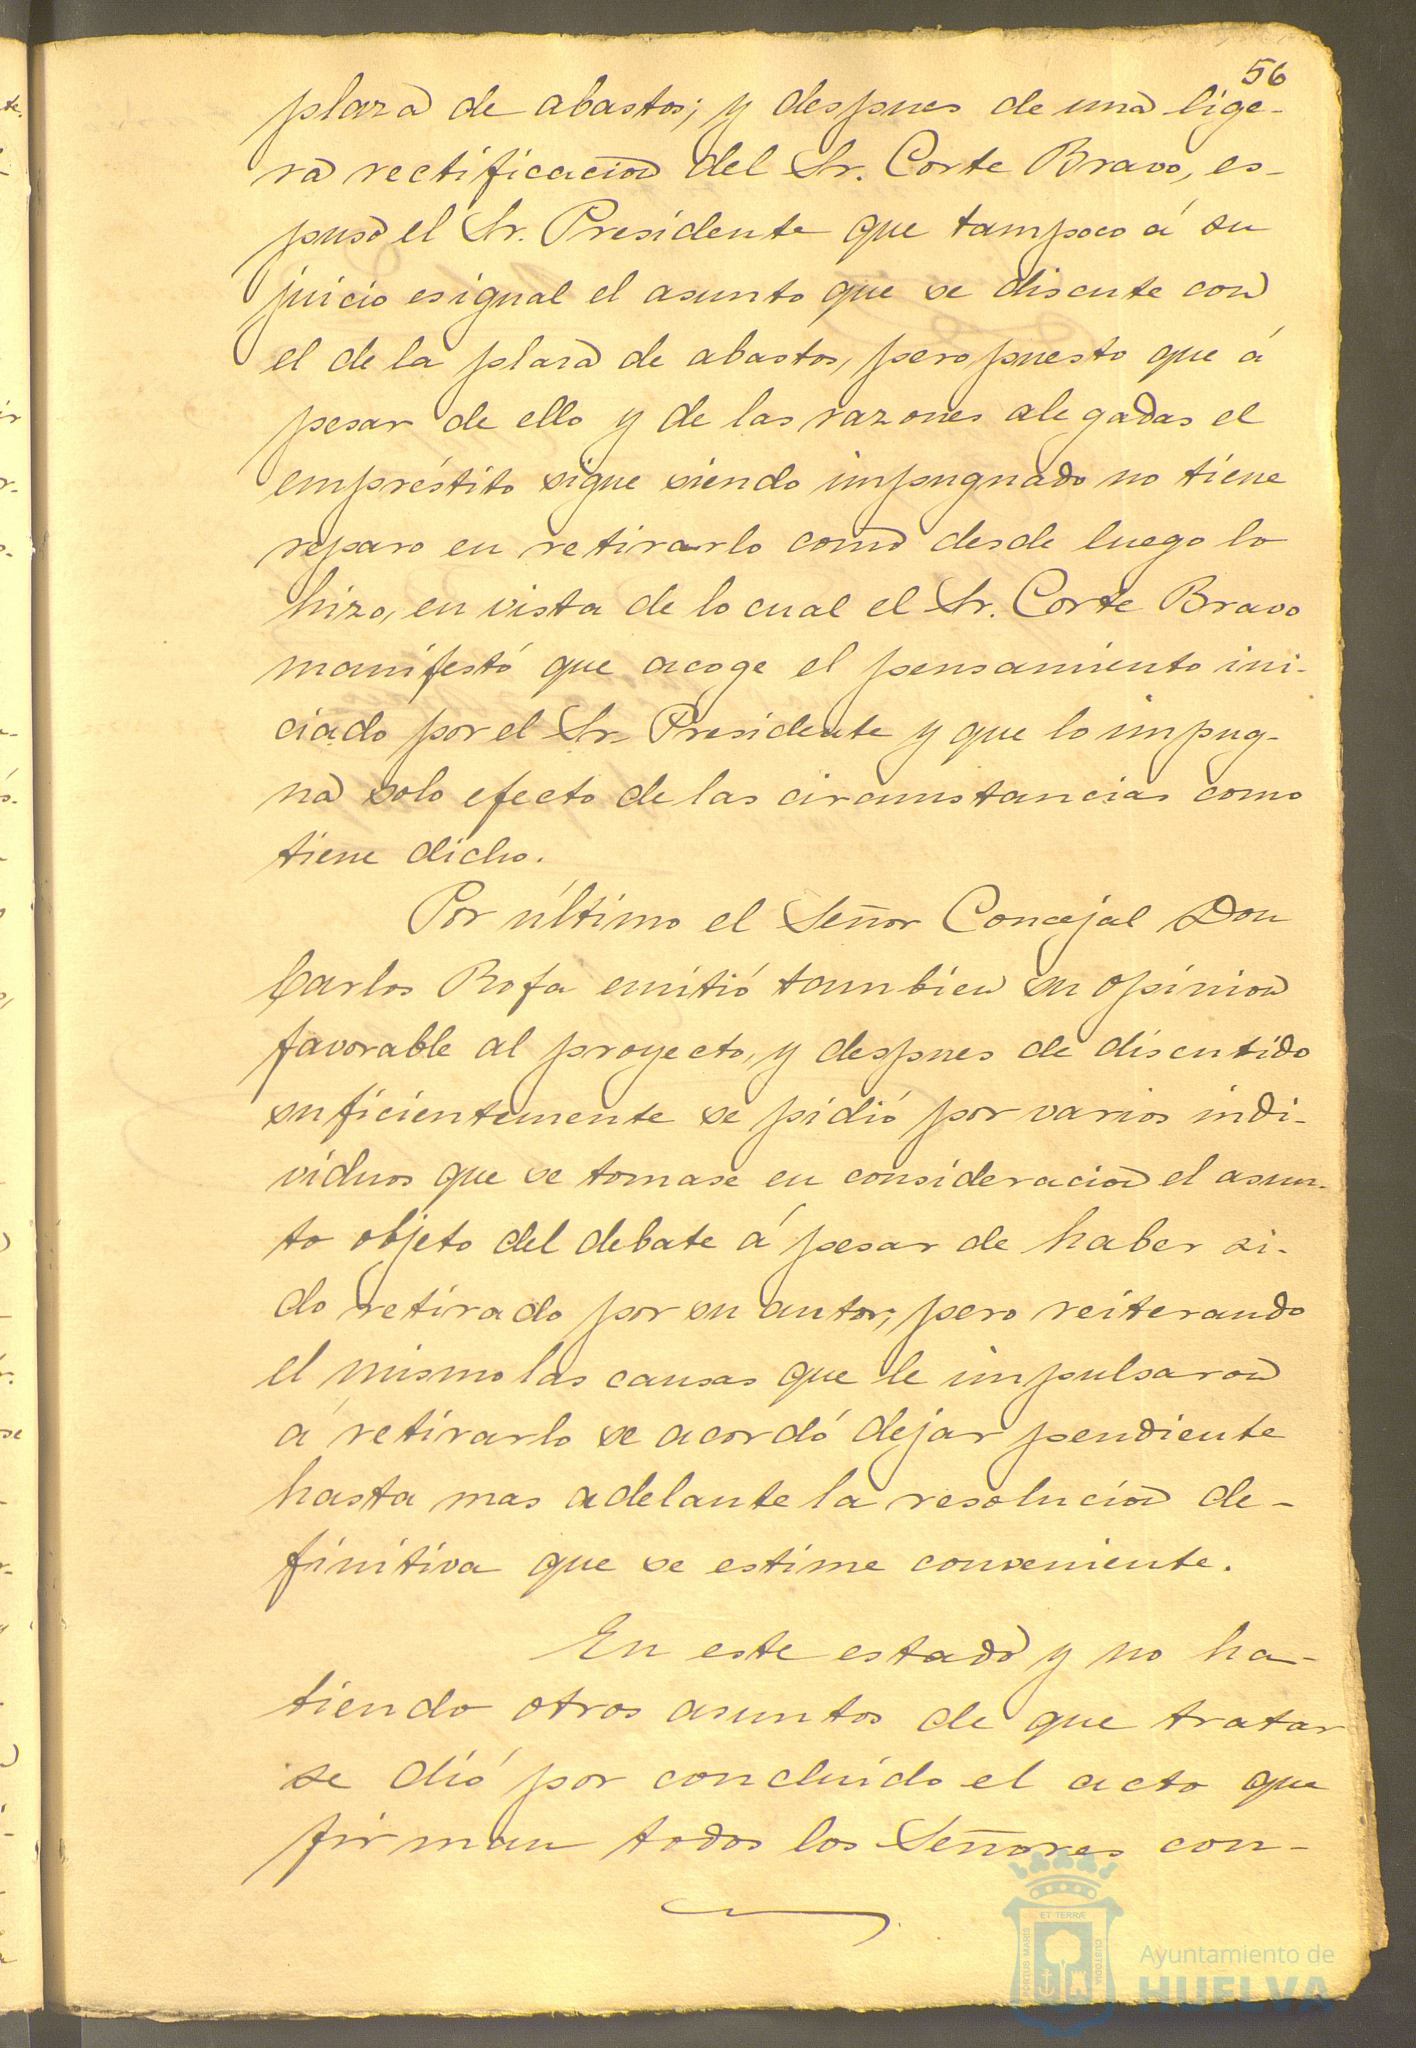 56
plaza de abastos; y despues de una lige-
ra rectificacion del Sr. Corte Bravo, es-
puso el Sr. Presidente que tampoco á su
juicio es igual el asunto que se discute con
el de la plaza de abastos, pero puesto que á
pesar de ello y de las razones alegadas el
empréstito sigue siendo impugnado no tiene
reparo en retirarlo como desde luego lo
hizo, en vista de lo cual el Sr. Corte Bravo
manifestó que acoge el pensamiento ini-
ciado por el Sr. Presidente y que lo impug-
na solo efecto de las circunstancias como
tiene dicho.
Por último el Señor Concejal Don
Carlos Rofa emitió tambien su opinion
favorable al proyecto, y despues de discutido
suficientemente se pidió por varios indi-
viduos que se tomase en consideracion el asun-
to objeto del debate á pesar de haber si-
do retirado por su autor; pero reiterando
el mismo las causas que le impulsaron
á retirarlo se acordó dejar pendiente
hasta mas adelante la resolucion de-
finitiva que se estime conveniente.
En este estado y no ha-
tiendo otros asuntos de que tratar
se dió por concluido el acto que
firman todos los Señores con-
ET TERRÆ
PORTUS MARIS
CUSTODIA
Ayuntamiento de
HUELVA